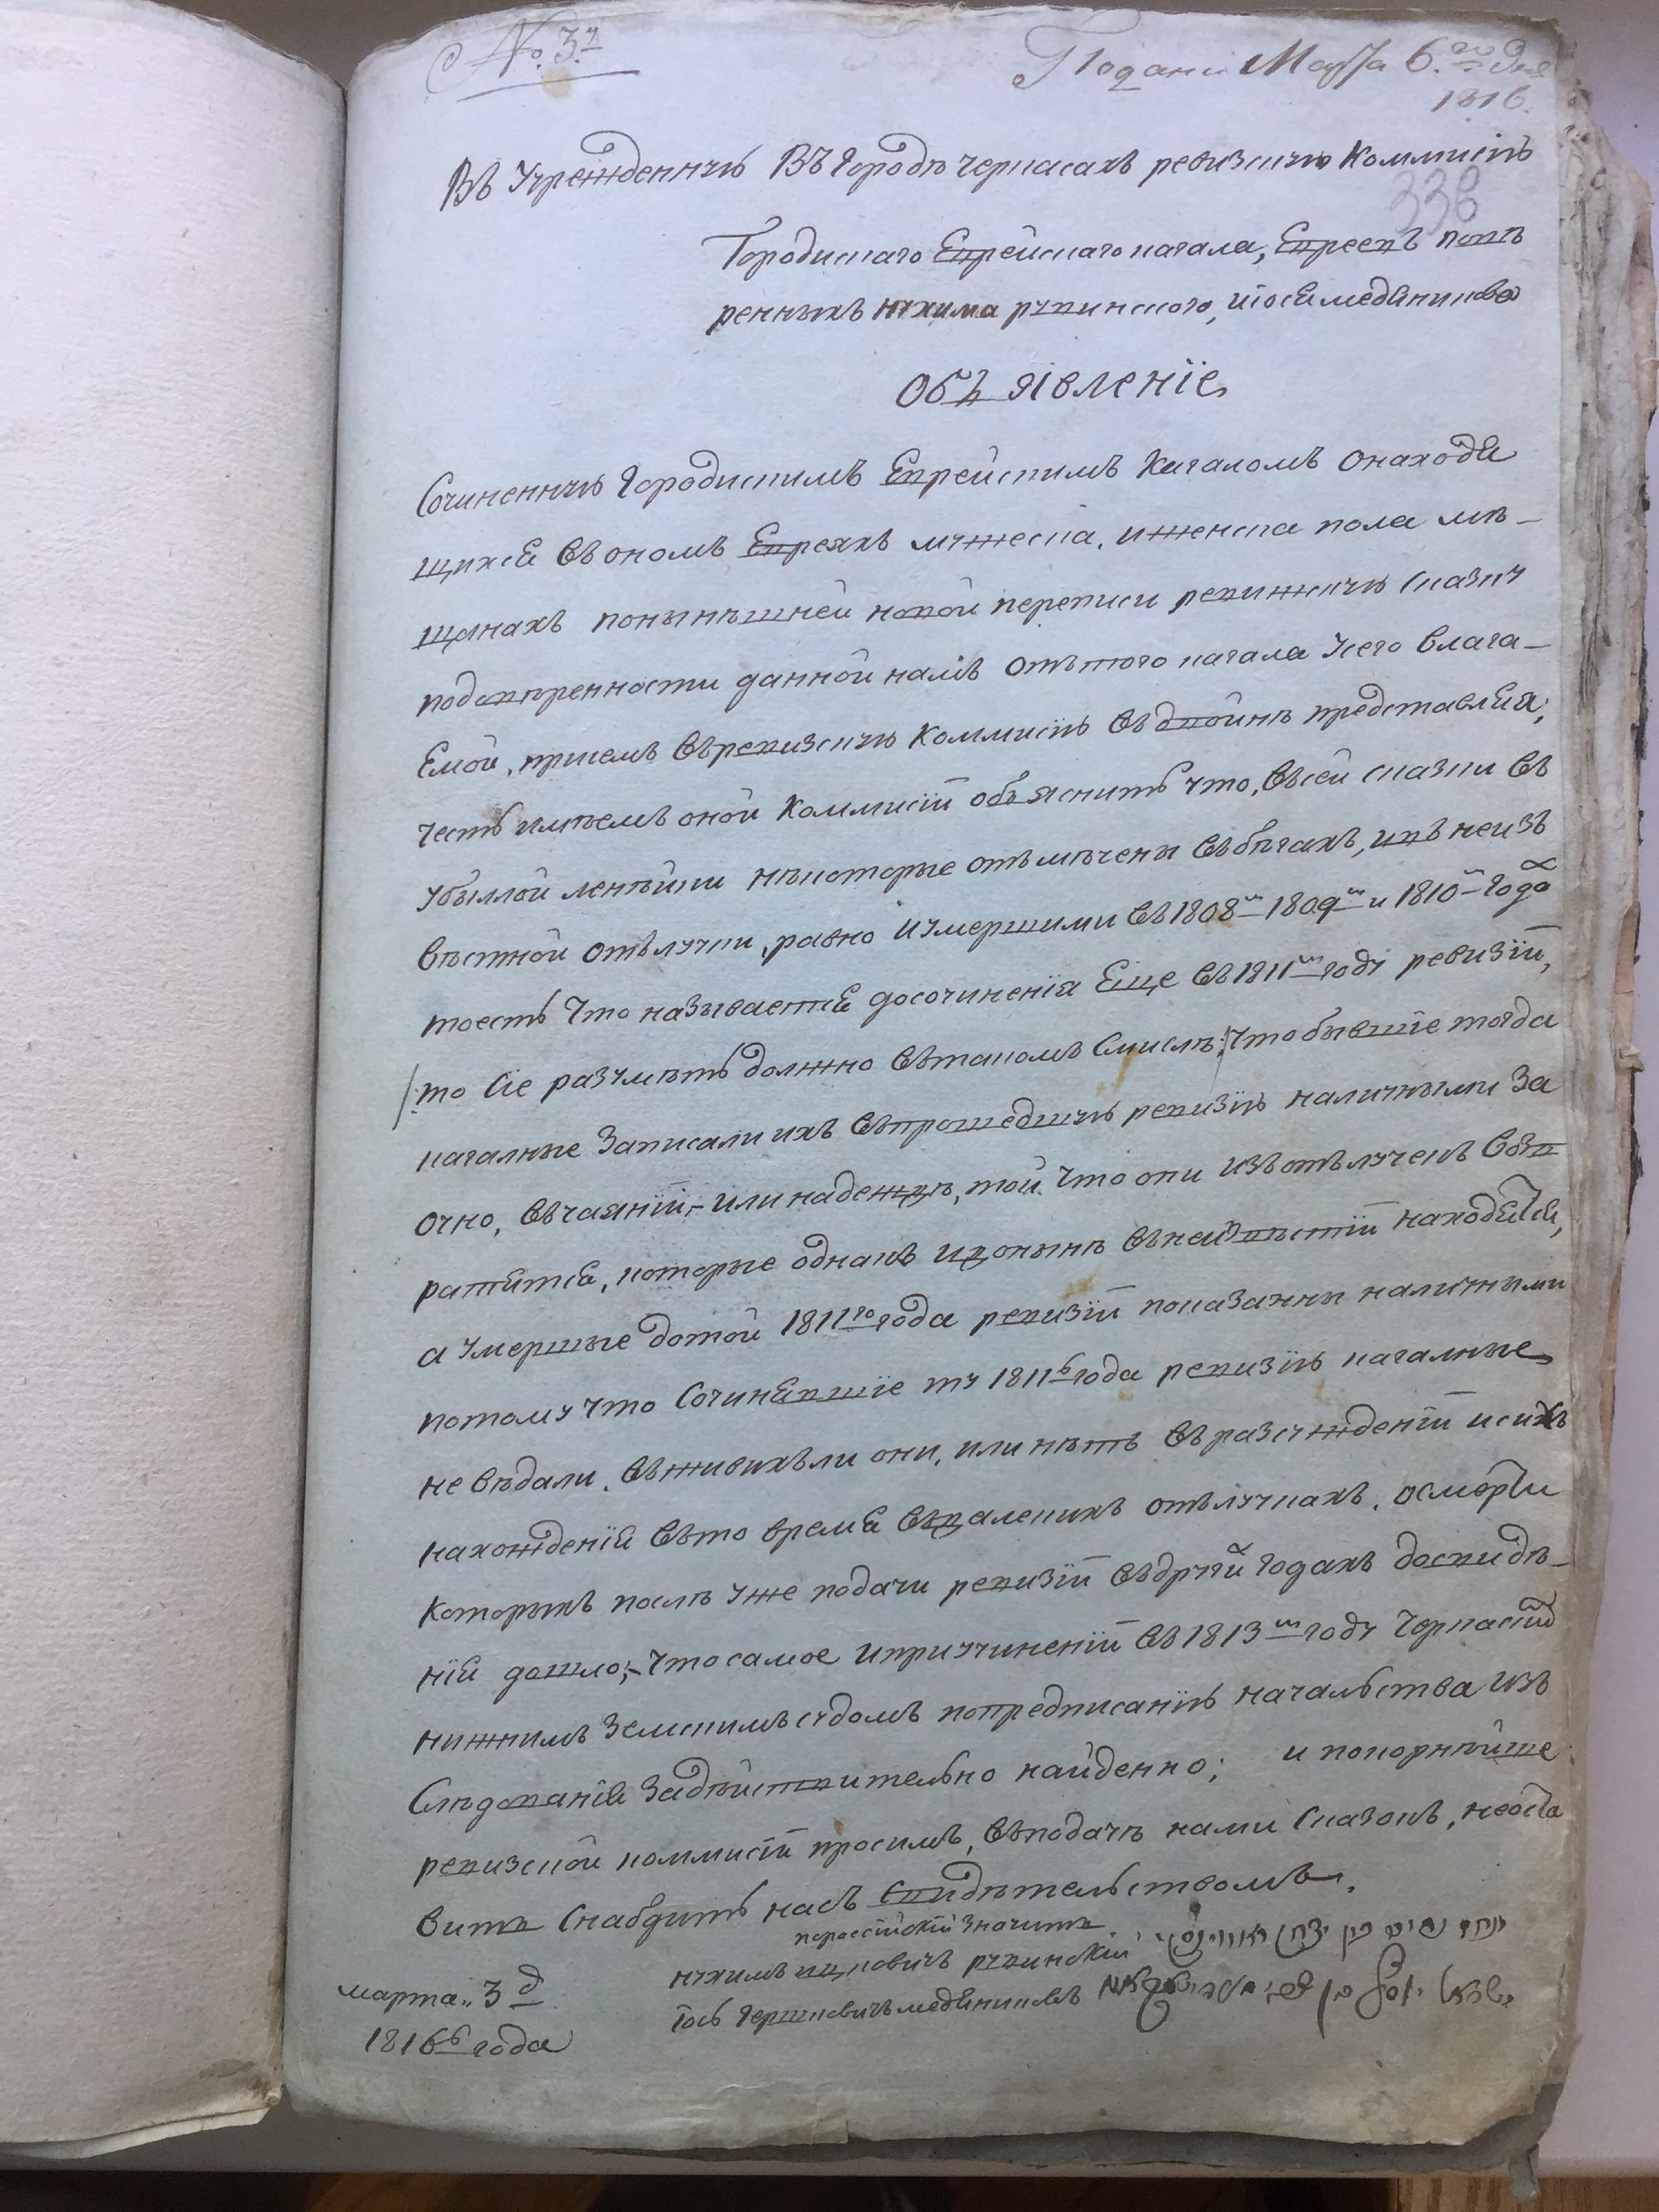 №. 3.й
Подано Марта 6.го дня
1816.
Въ Учрежденную Въ городѣ черкасахъ ревизскую Коммисію
338
Городискаго Еврейскаго кагала, Евреевъ повѣ
ренныхъ нухима рувинского, иіося медяникова
Объявленіе
Сочиненную городискимъ Еврейскимъ Кагаломъ онаходя
щихся въ ономъ Евреяхъ мужеска, иженска пола мѣ-
щанахъ понынѣшней новой переписи ревижскую сказку
подовѣренности данной намъ отъ того кагала усего влага-
емой, присемъ въревизскую Коммисію въдвойнѣ представляя;
честь имѣемъ оной Коммисіи объяснить что, въсей сказки въ
убыллой линѣйки нѣкоторые отъмѣчены въбѣгахъ, ивъ неизъ
вѣстной отълучки, равно иумершими въ 1808м 1809м и 1810м года
тоесть что называется досочиненія Еще въ 1811м году ревизіи,
/:то Сіе разумѣть должно вътакомъ Смислѣ:/ что бывшіе тогда
кагалные Записали ихъ въпрошедшую ревизію наличными за
очно, въчаяніи,- или надеждѣ, той что они изъотълученъ воз
ратятся, которые однакъ идонынѣ въ неизвѣстіи находятся,
а умершые дотой 1811го года ревизіи показанны наличными
потому что Сочинявшіе ту 1811го года ревизію кагалные
не вѣдали, въживихъли они, или нѣтъ въразсужденіи исихъ
нахожденія въто время въдалекихъ отълучкахъ, осмерти
которыхъ послѣ уже подачи ревизіи въдругій годахъ досвидѣ-
нія дошло;- чтосамое ипри учиненіи въ 1813м году Черкаскимъ
нижнимъ Земскимъ судомъ попредписанію начальства изъ
Слѣдованія задѣйствительно найденно; и покорнѣйше
ревизской коммисіи просимъ, въподачѣ нами Сказокъ, неоста
вить Снабдить насъ Свидѣтельствомъ.
пороссійскій значитъ
нухимъ ицковичъ рувинскій
іось гершковичъ медяниковъ
марта 3 д
1816го года